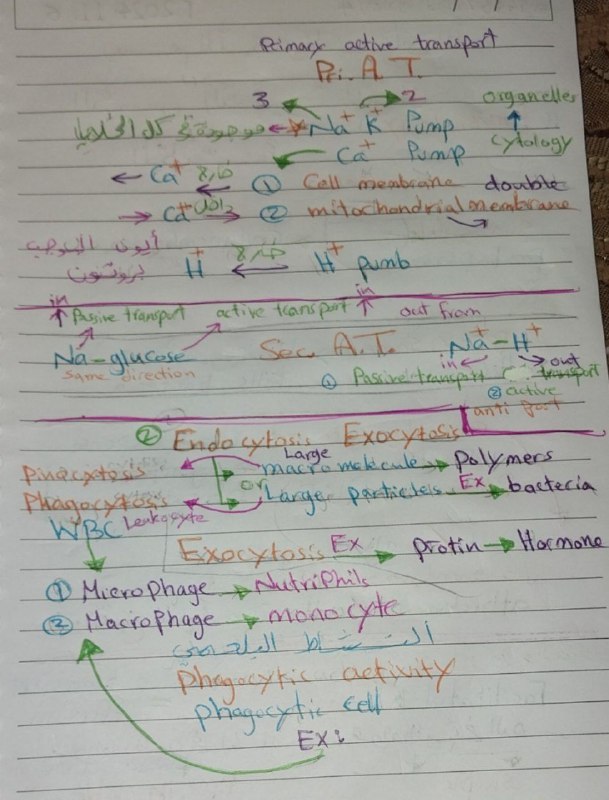 Primary active transport
Pri. A. T.
3 2 organelles
موجودة في كل الخلايا Na+ K+ Pump
Ca+ Pump cytology
Ca+ خارج ① Cell membrane double
Ca+ داخل ② mitochondrial membrane
أيون
بروتون H+ خارج H+ pumb
in in
Passive transport active transport out from
Na-glucose Sec. A.T. Na+-H+
Same direction in out
① Passive transport transport
② active
anti port
② Endocytosis Exocytosis
Large
Pinocytosis macromolecule Polymers
or
Phagocytosis Large particles Ex bacteria
WBC Leakocyte
Exocytosis Ex protin Hormone
① Microphage Nutriphils
② Macrophage monocyte
phagocytic activity
phagocytic cell
Ex: